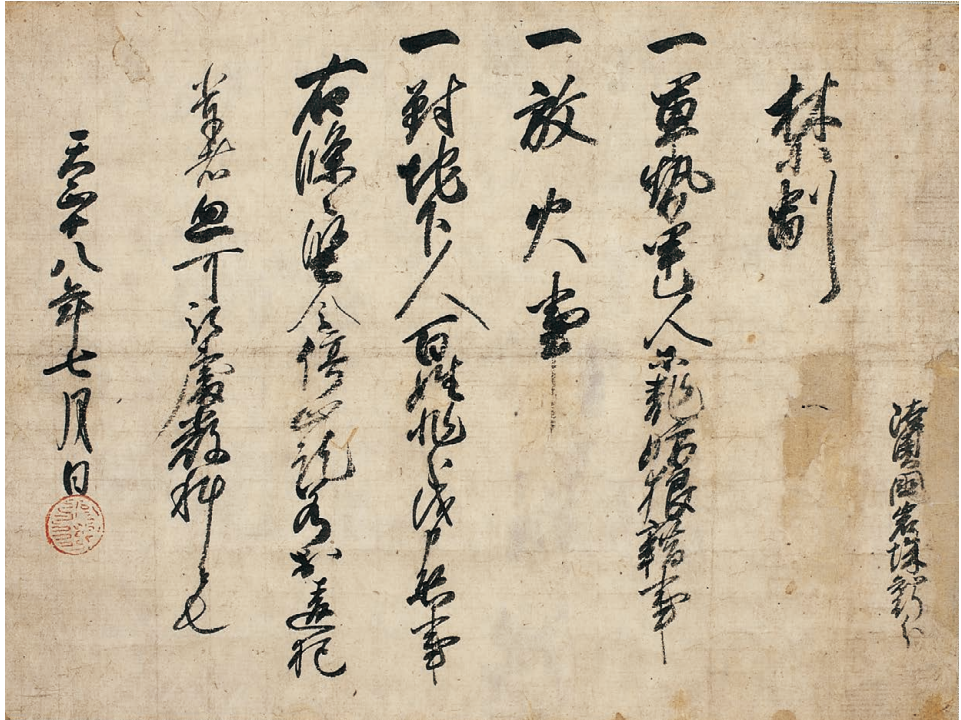 禁制
一軍勢甲乙人等乱妨狼藉事
一放火事
一対地下人百姓非分之儀申懸事
右條々堅令停止訖若於違犯
輩者忽可被處厳科者也
天正十八年七月日